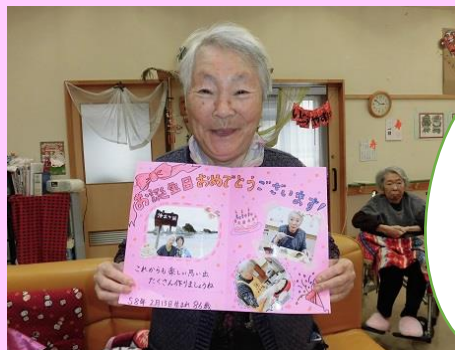 お誕生日おめでとうございます!
これからも楽しい思い出
たくさん作りましょうね
S8年 2月13日生まれ 86歳